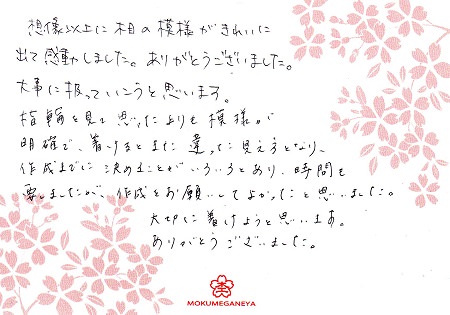 想像以上に木目の模様がきれいに
出て感動しました。ありがとうございました。
大事に扱っていこうと思います。
指輪を見て思ったよりも模様が
明確で、着けるとまた違った見えるとなり、
作成までに決めることがいろいろとあり、時間も
要しましたが、作成をお願いしてよかったと思いました。
大切に着けようと思います。
ありがとうございました。
MOKUMEGANEYA